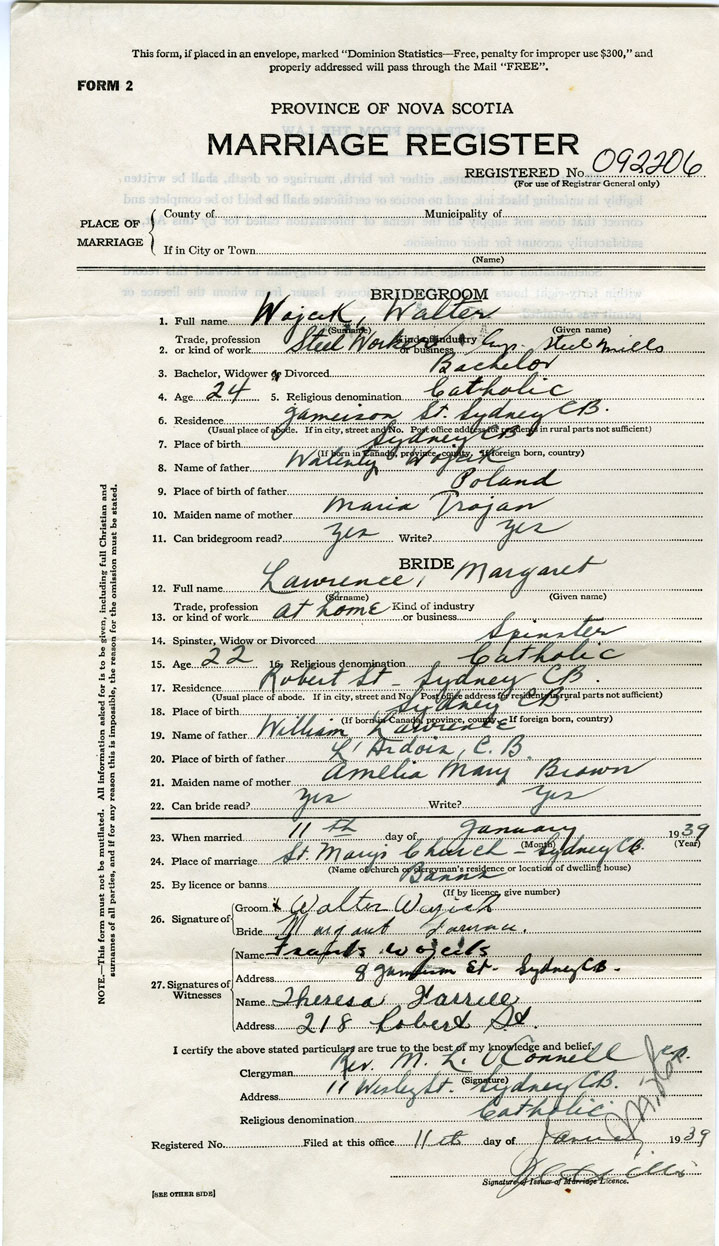 This form, if placed in an envelope, marked "Dominion Statistics—Free, penalty for improper use $300," and
properly addressed will pass through the Mail "FREE".
FORM 2
PROVINCE OF NOVA SCOTIA
MARRIAGE REGISTER
REGISTERED No. 092206
(For use of Registrar General only)
PLACE OF MARRIAGE
County of Municipality of
If in City or Town
(Name)
BRIDEGROOM
1. Full name Wojcik, Walter
(Surname) (Given name)
2. Trade, profession or kind of work Steel Worker Kind of industry or business Steel Mills
3. Bachelor, Widower or Divorced Bachelor
4. Age 24 5. Religious denomination Catholic
6. Residence Jameison St. Sydney CB.
(Usual place of abode. If in city, street and No. Post office address for residents in rural parts not sufficient)
7. Place of birth Sydney CB
(If born in Canada, province, county. If foreign born, country)
8. Name of father Walenty Wojcik
9. Place of birth of father Poland
10. Maiden name of mother Maria Trojan
11. Can bridegroom read? Yes Write? Yes
BRIDE
12. Full name Lawrence, Margaret
(Surname) (Given name)
13. Trade, profession or kind of work at home Kind of industry or business
14. Spinster, Widow or Divorced Spinster
15. Age 22 16. Religious denomination Catholic
17. Residence Robert St - Sydney CB.
(Usual place of abode. If in city, street and No. Post office address for residents in rural parts not sufficient)
18. Place of birth Sydney CB
(If born in Canada, province, county. If foreign born, country)
19. Name of father William Lawrence
20. Place of birth of father L'Ardois, C.B.
21. Maiden name of mother Amelia Mary Brown
22. Can bride read? Yes Write? Yes
23. When married 11th day of January 1939
(Month) (Year)
24. Place of marriage St. Marys Church - Sydney CB.
(Name of church or clergyman's residence or location of dwelling house)
25. By licence or banns Banns
(If by licence, give number)
26. Signature of
Groom Walter Wojcik
Bride Margaret Lawrence.
27. Signatures of Witnesses
Name Frank
Address 8 St. Sydney CB.
Name Theresa
Address 218 Robert St.
I certify the above stated particulars are true to the best of my knowledge and belief.
Clergyman Rev. M. L. O'Connell
(Signature)
Address 11 Wesley St. Sydney CB.
Religious denomination Catholic
Registered No. Filed at this office 11th day of January 1939
Signature of Issuer of Marriage Licence.
[SEE OTHER SIDE]
NOTE.—This form must not be mutilated. All information asked for is to be given, including full Christian and
surnames of all parties, and if for any reason this is impossible, the reason for the omission must be stated.